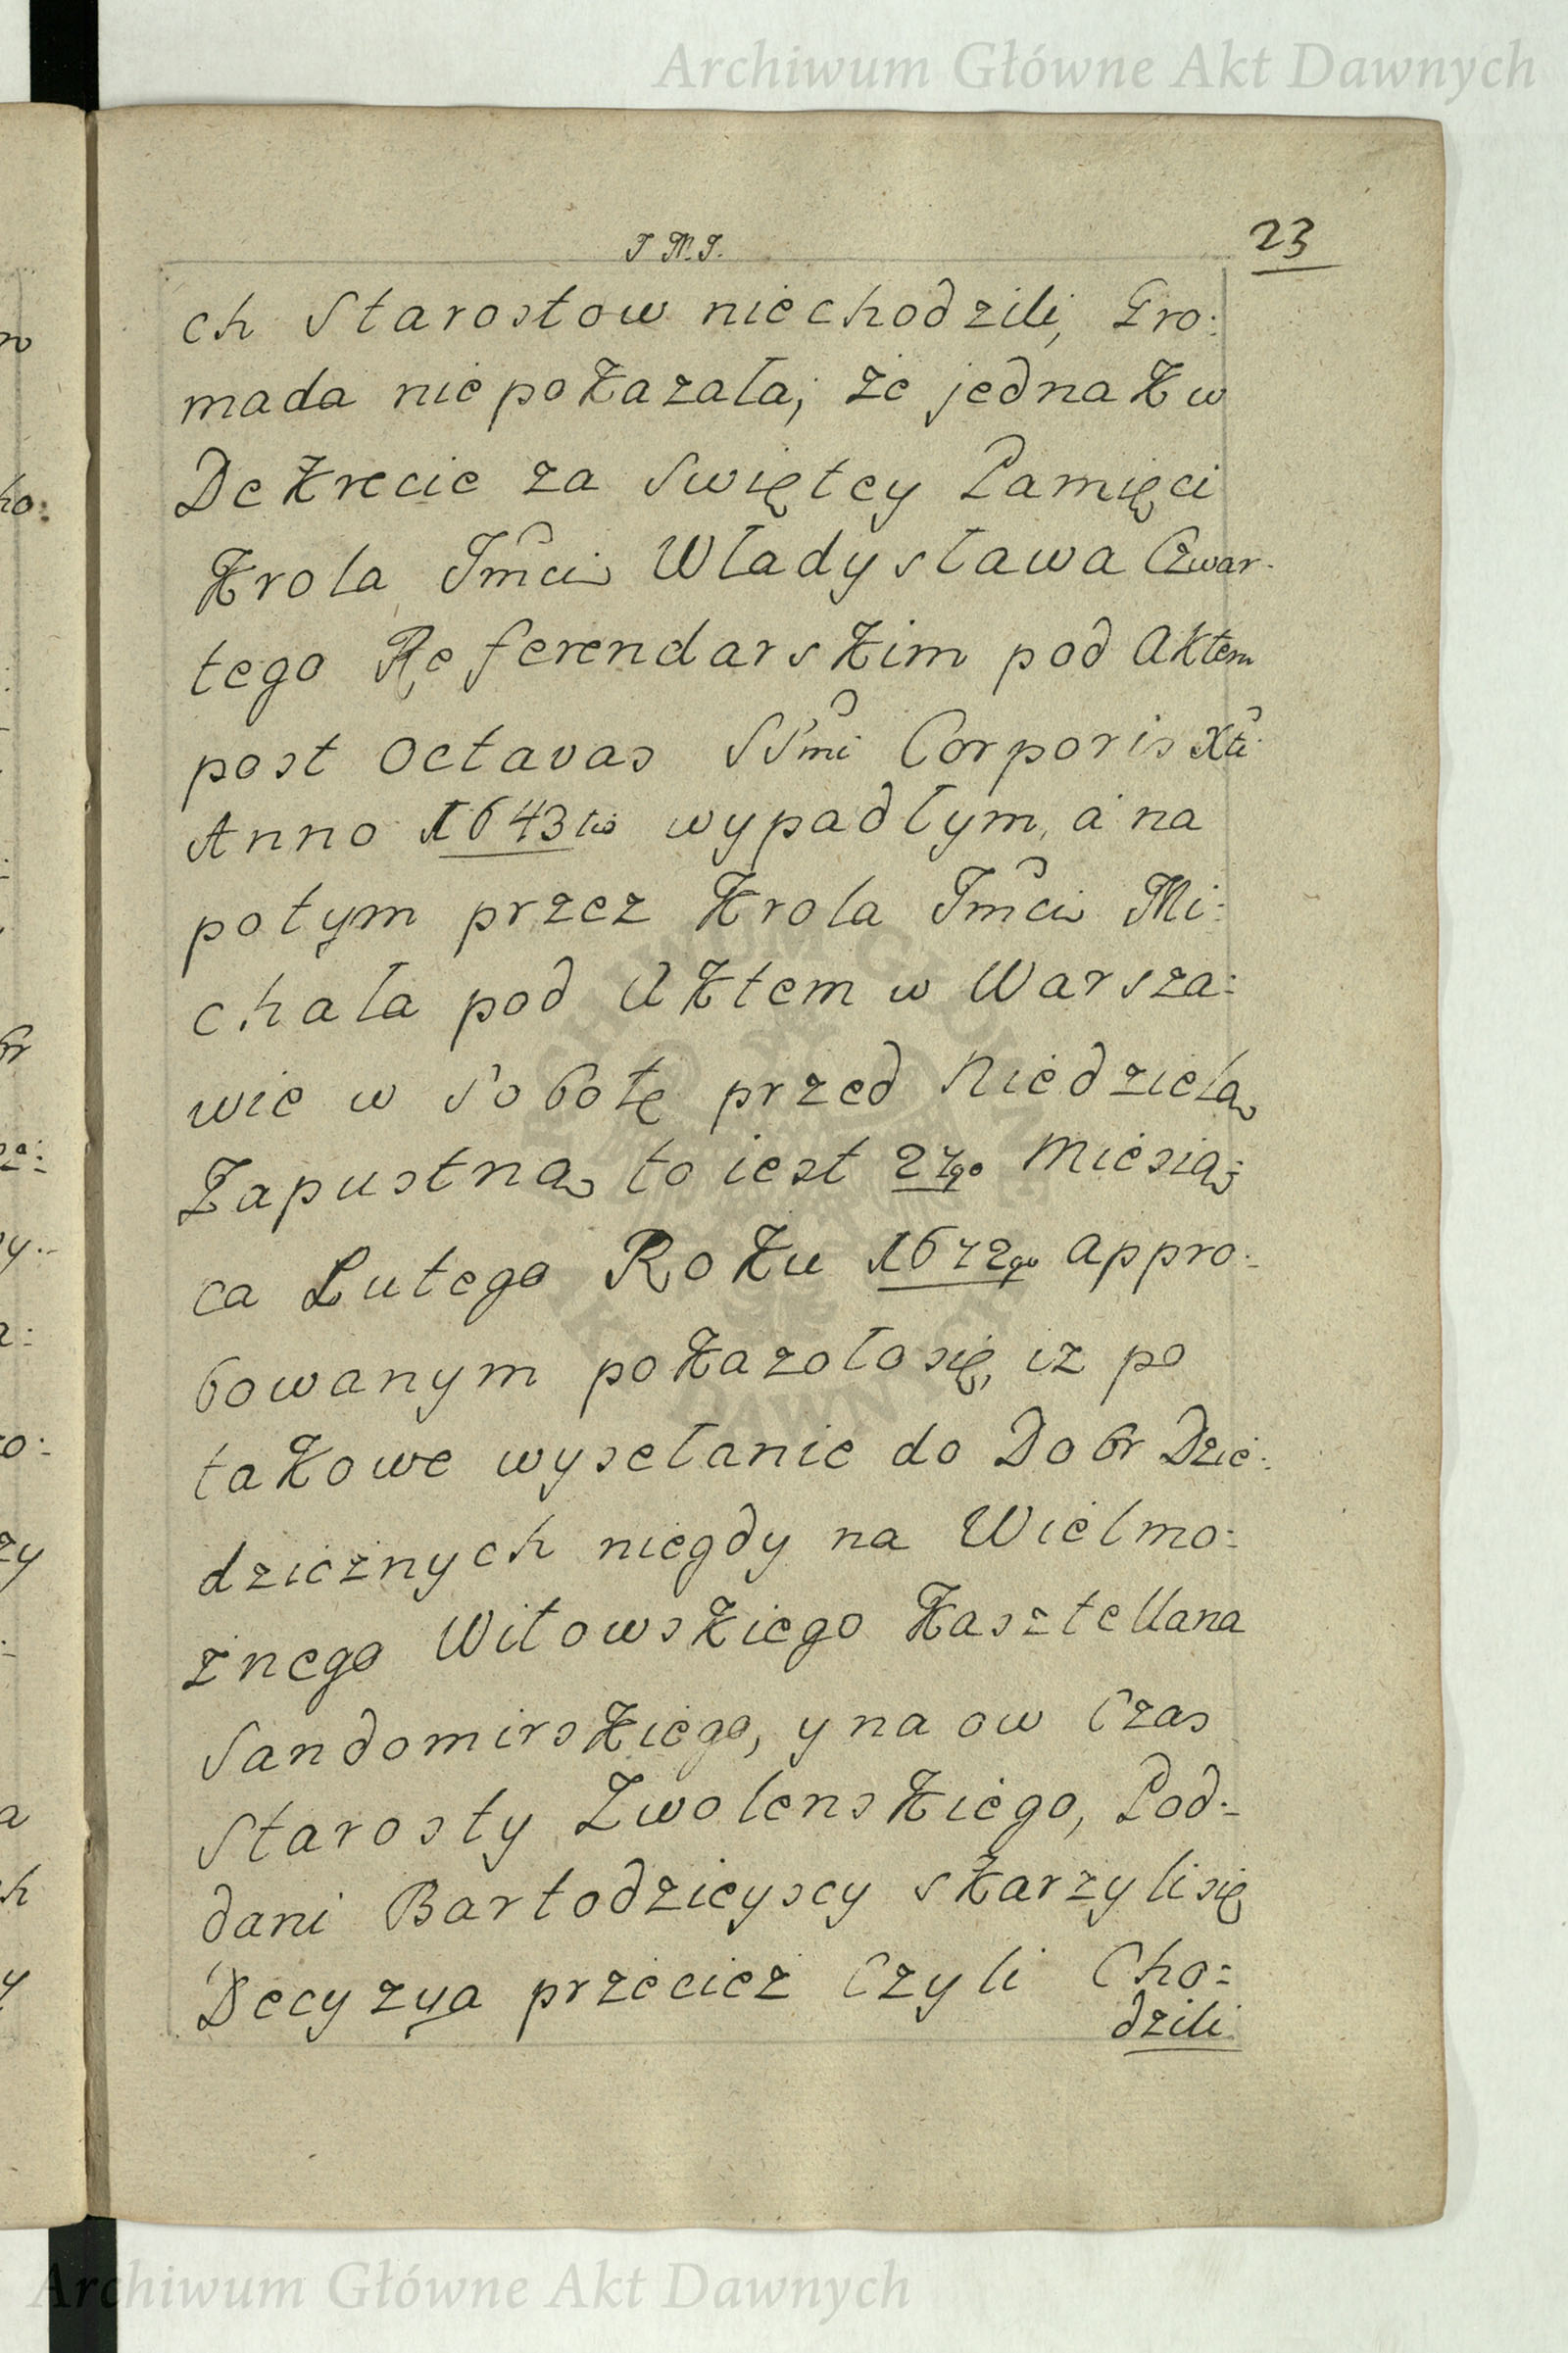 Archiwum Główne Akt Dawnych
J. M. J.
23
ch Starostow niechodzili, Gro:
mada niepokazała; że jednak w
Dekrecie za Swiętey Pamięci
Krola Jmci Władysława Czwar-
tego Referendarskim pod Aktem
post Octavas SSmi Corporis Xti
Anno 1643tio wypadłym, a na
potym przez Krola Jmci Mi:
chała pod Aktem w Warsza:
wie w Sobotę przed Niedzielą
Zapustną to iest 27go Miesią:
ca Lutego Roku 1672go appro:
bowanym pokazołosię, iz po
takowe wysełanie do Dobr Dzie:
dzicznych niegdy na Wielmo:
żnego Witowskiego Kasztellana
Sandomirskiego, y na ow Czas
Starosty Zwolenskiego, Pod:
dani Bartodzieyscy skarzylisię
Decyzya przecież Czyli Cho:
dzili
Archiwum Główne Akt Dawnych